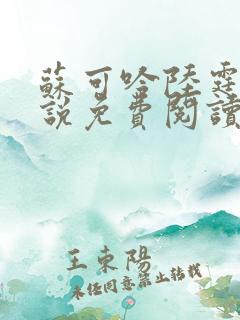 蘇可唅陸霆
說免費閱讀
王東陽
未經同意禁止轉載